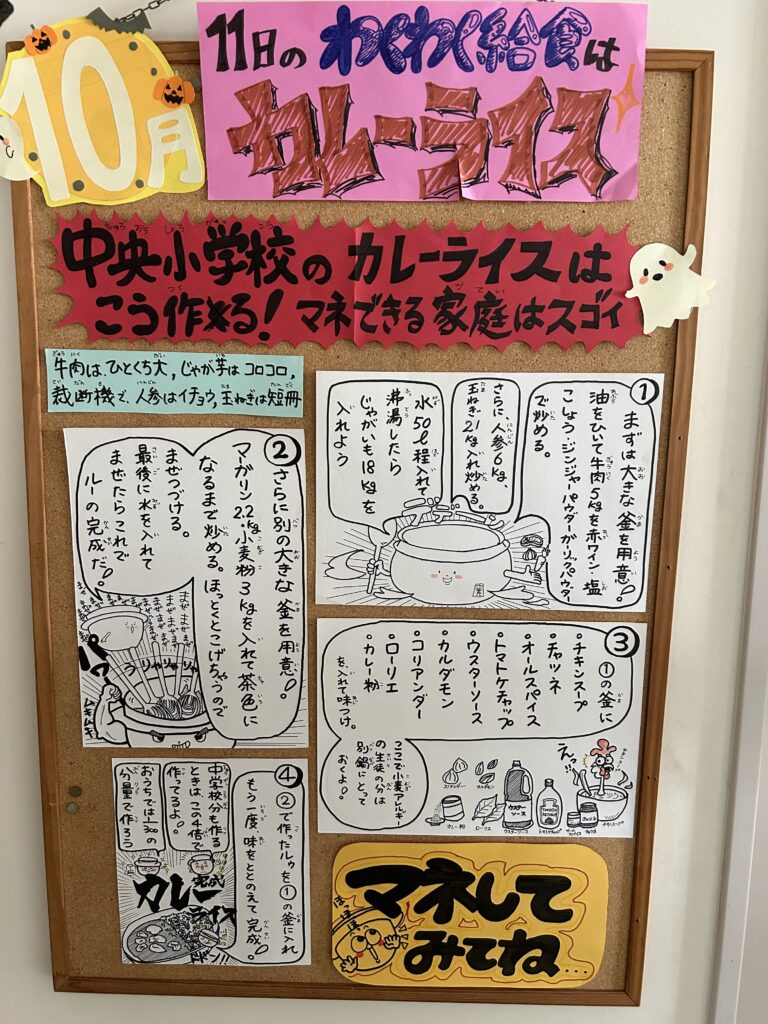 10月
11日の わくわく給食は
カレーライス
中央小学校の カレーライスは
こう作る! マネできる家庭はスゴイ
牛肉は、ひとくち大, じゃが芋は コロコロ,
裁断機で、人参はイチョウ, 玉ねぎは短冊
①
まずは大きな釜を用意!
油をひいて牛肉5kgを赤ワイン・塩
こしょう・ジンジャーパウダーガーリックパウダー
で炒める。
さらに、人参6kg、
玉ねぎ21kg入れ炒める。
水50ℓ程入れて
沸湯したら
じゃがいも18kgを
入れよう
②
さらに別の大きな釜を用意!
マーガリン
2.2kg・小麦粉3kgを入れて茶色に
なるまで炒める。ほっとくとこげちゃうので
まぜつづける。
最後に水を入れて
まぜたらこれで
ルーの完成だ!
まぜまぜ
うりゃりゃりゃ
ムキムキ
③
①の釜に
・チキンスープ
・チャツネ
・オールスパイス
・トマトケチャップ
・ウスターソース
・カルダモン
・コリアンダー
・ローリエ
・カレー粉
を入れて味つけ。
ここで小麦アレルギー
の生徒の分は
別鍋にとって
おくよ!
えっ!!
コリアンダー
カルダモン
カレー粉
ローリエ
ウスターソース
トマトケチャップ
オールスパイス
チャツネ
チキンスープ
④
②で作ったルゥを①の釜に入れ
もう一度、味をととのえて完成。
中学校分も作る
ときは、この4倍で
作ってるよ!
おうちでは1/300の
分量で作ろう
完成
カレー
ライス
ドドン!!
マネして
みてね....
ほっほっほ